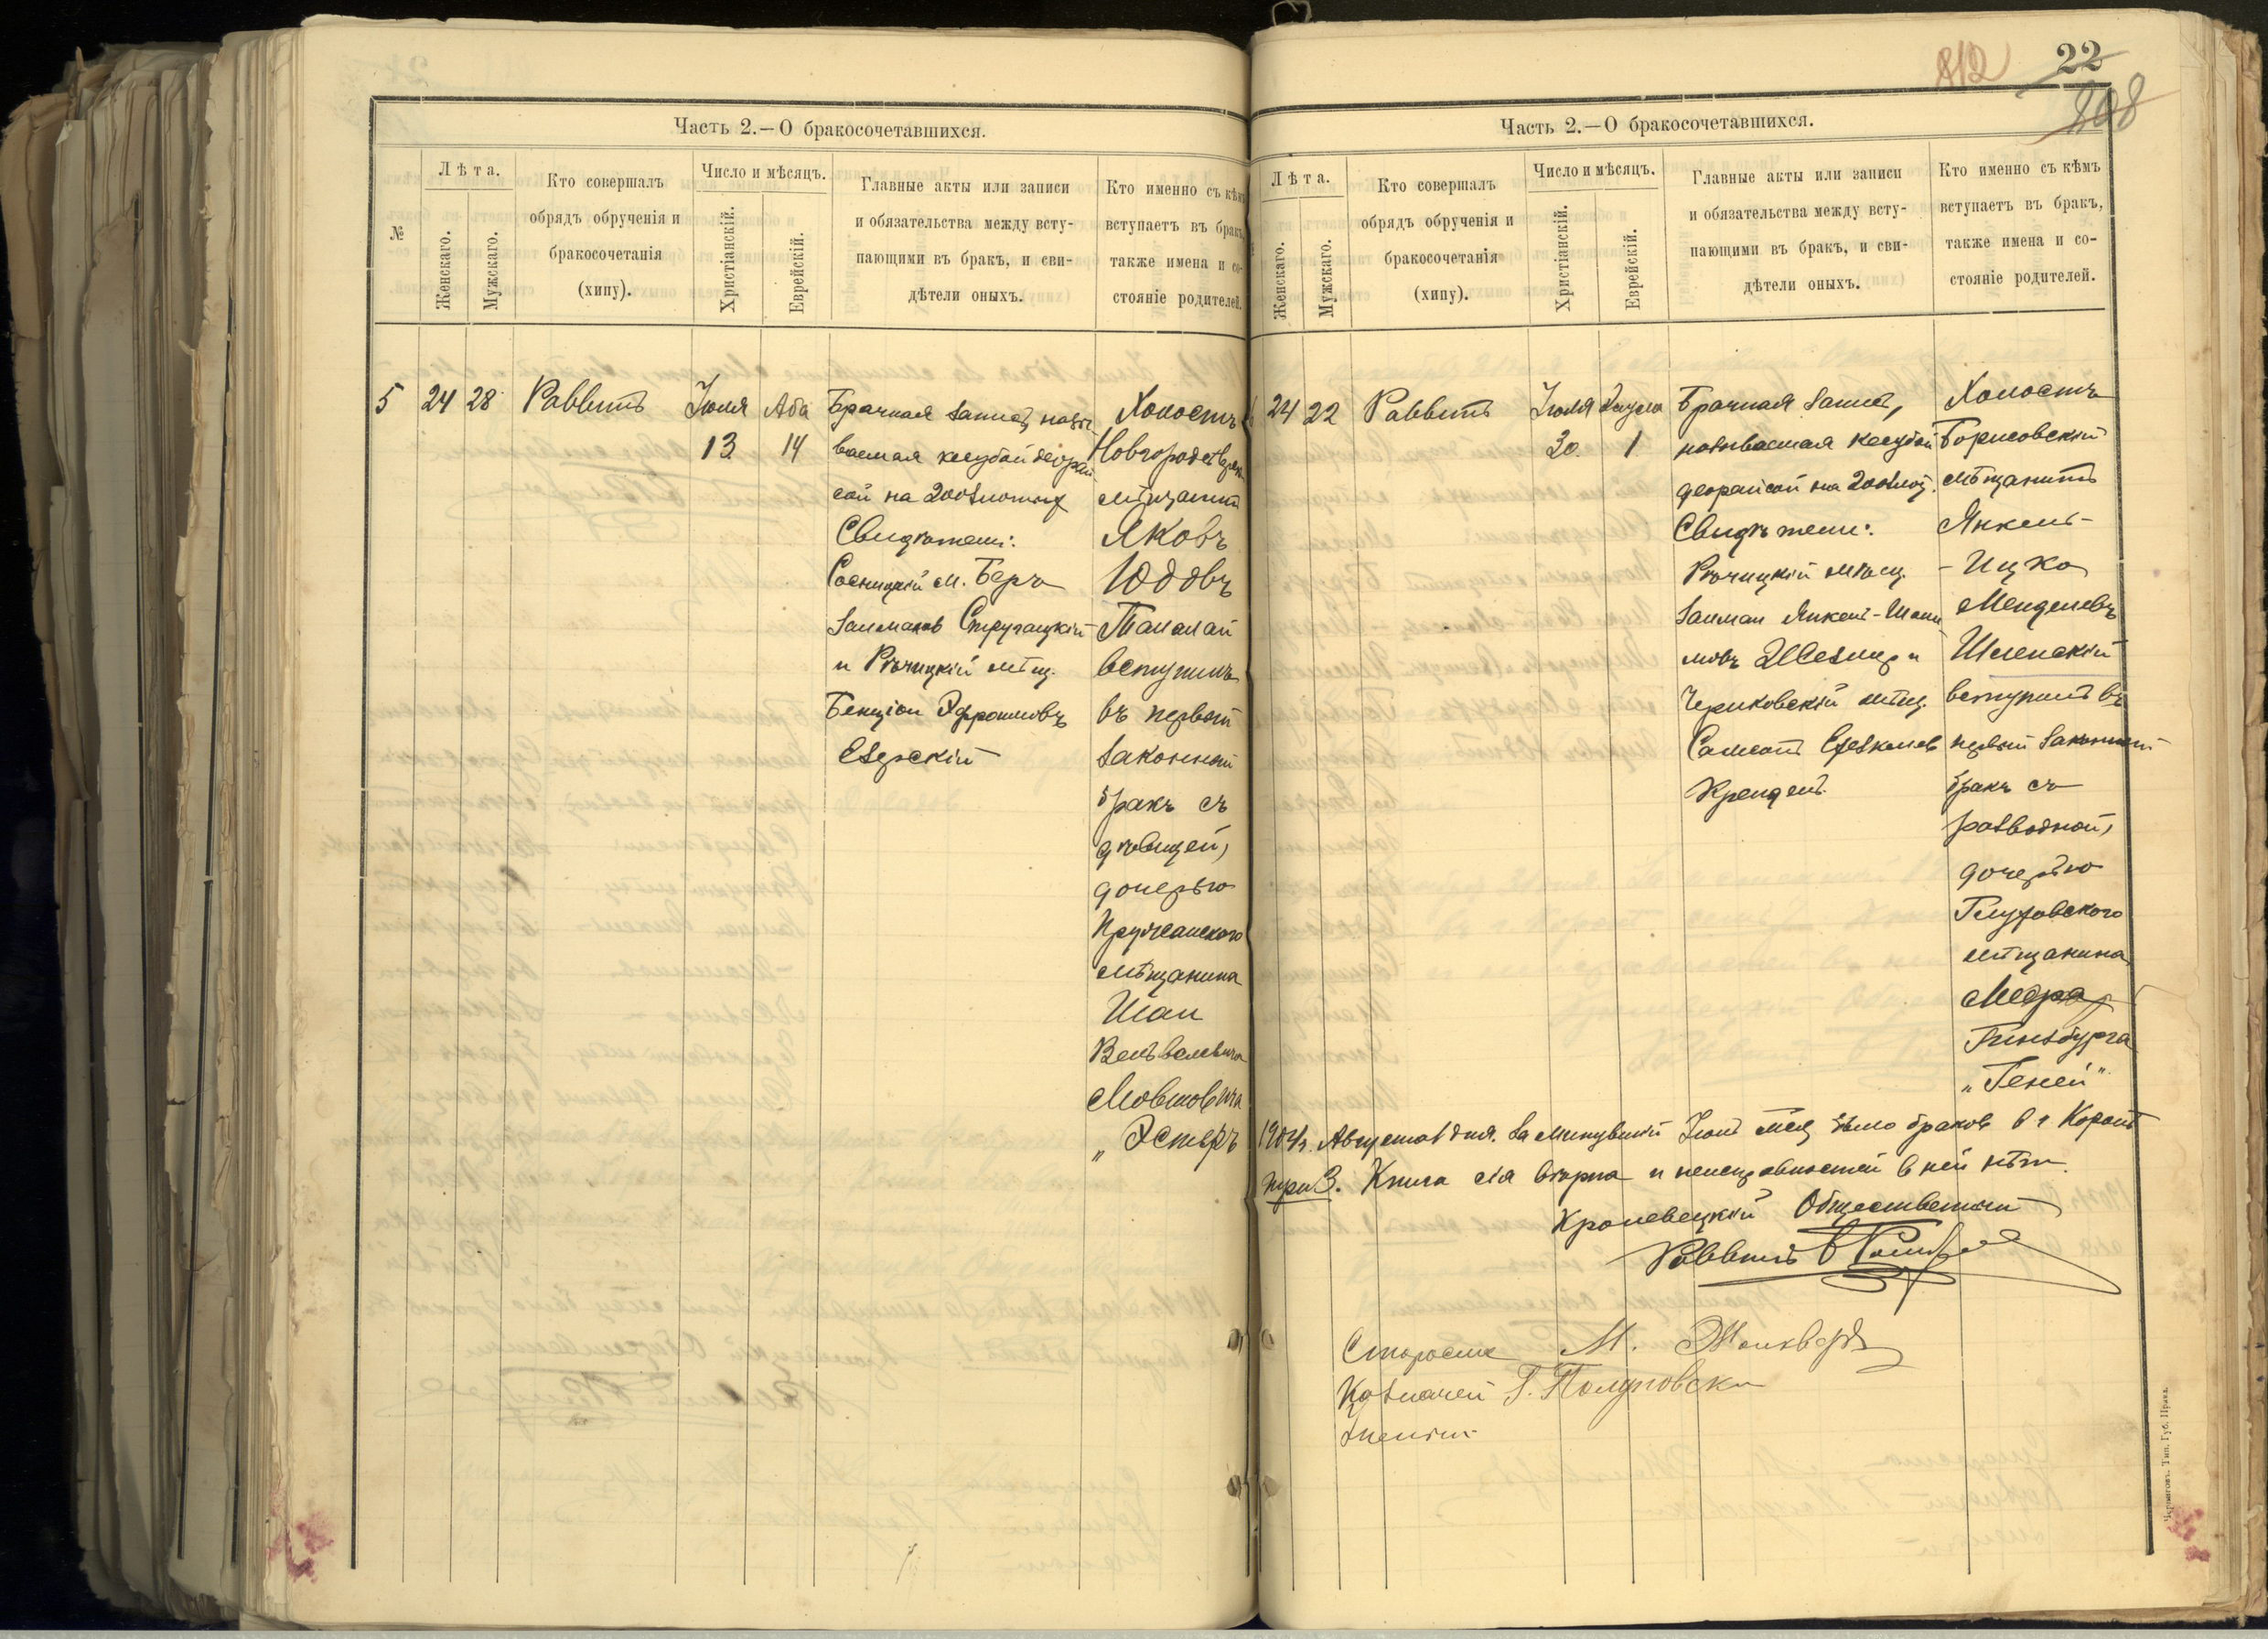 Часть 2.—О бракосочетавшихся.
№
Лѣта.
Женскаго.
Мужскаго.
Кто совершалъ
обрядъ обрученія и
бракосочетанія
(хипу).
Число и мѣсяцъ.
Христіанскій.
Еврейскій.
Главные акты или записи
и обязательства между всту-
пающими въ бракъ, и сви-
дѣтели оныхъ.
Кто именно съ кѣмъ
вступаетъ въ бракъ,
также имена и со-
стояніе родителей.
5
24
28
Раввинъ
Іюля
13
Аба
14
Брачная запись, назы-
ваемая кесубой деорай
сой на 200 злотыхъ
Свидѣтели:
Сосницкій м. Беръ
Залманов Стругацкій
и Рѣчицкій мѣщ.
Бенціон Эфроимовъ
Езерскій
Холостъ
мѣщанинъ
Яковъ
Юдовъ
вступилъ
въ первый
законный
бракъ съ
дѣвицей,
дочерью
Пружанскаго
мѣщанина
Шаи
Вельвелевича
Мовшовича
„Эстеръ
22
812
208
Часть 2.—О бракосочетавшихся.
Лѣта.
Женскаго.
Мужскаго.
Кто совершалъ
обрядъ обрученія и
бракосочетанія
(хипу).
Число и мѣсяцъ.
Христіанскій.
Еврейскій.
Главные акты или записи
и обязательства между всту-
пающими въ бракъ, и сви-
дѣтели оныхъ.
Кто именно съ кѣмъ
вступаетъ въ бракъ,
также имена и со-
стояніе родителей.
24
22
Раввинъ
Іюля
30
1
Брачная запись,
называемая кесубой
деорайсой на 200 злот.
Свидѣтели:
Рѣчицкій мѣщ.
Залман Янкель-
и
Чериковскій мѣщ.
Самсонъ
Крендель
Холостъ
Борисовскій
мѣщанинъ
Янкель-
-Ицко
Менделевъ
вступилъ въ
первый законный
бракъ съ
разводной,
дочерью
Глуховского
мѣщанина
Меера
Гинзбурга
„Геней"
Августа 1 дня. За минувшій Іюль мѣсяц было браков в г. Коропѣ
три 3. Книга сія вѣрна и неисправностей в ней нѣт.
Кролевецкій Общественный
Раввинъ
Староста М.
Казначей Г.
Ученый
Черниговъ. Тип. Губ. Правл.